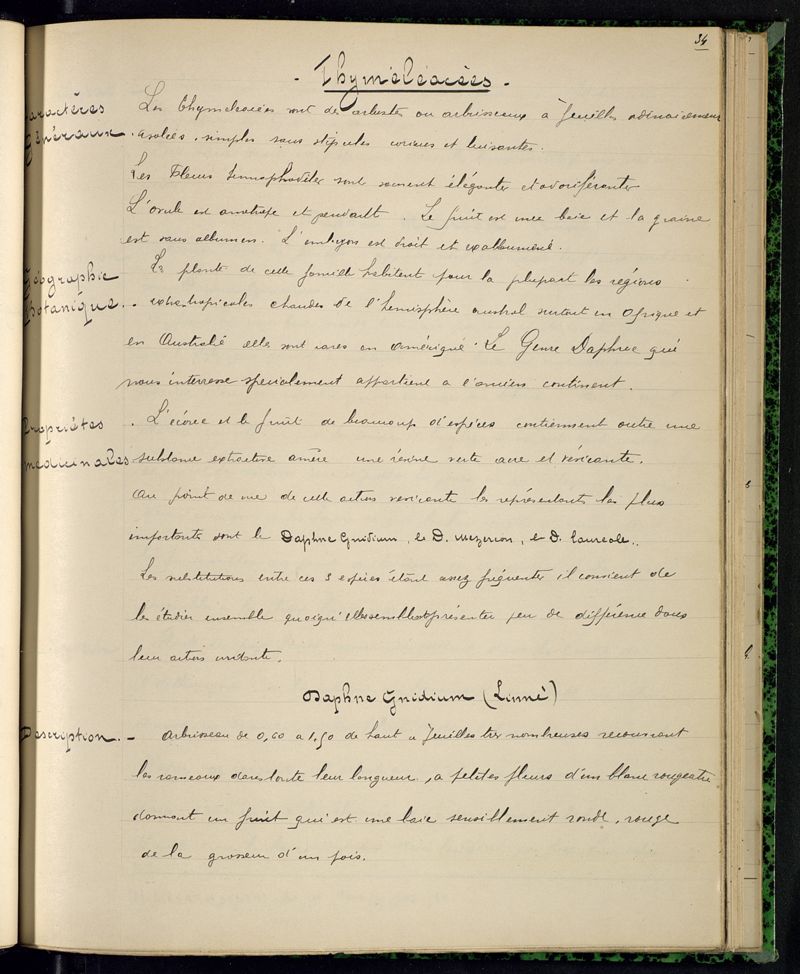 34
- Thyméléacées -
Caractères
Généraux
Les thymeleacées sont de arbustes ou arbrisseaux à feuilles ordinairement
isolées. simples sans stipules coriaces et luisantes.
Les Fleurs hermaphrodites sont souvent élégantes et odoriférantes
L'ovule est anatrope et pendant. Le fruit est une baie et la graine
est sans albumen. L'embryon est droit et exalbuminé.
Géographie
Botanique.
Le plante de cette famille habitent pour la plupart les régions
extra-tropicales chaudes de l'hémisphère austral surtout en Afrique et
en Australie elles sont rares en amérique. Le Genre Daphne qui
nous interresse specialement appartient a l'ancien continent.
Propriétes
médicinales
. L'écorce et le fruit de beaucoup d'espèces contiennent outre une
substance extractive amère une résine verte acre et vésicante.
Au point de vue de cette action vesicante les représentants les plus
importants sont le Daphne Gnidium, le D. mezereon, le D. laureole..
Les substitutions entre ces 3 espèces étant assez fréquentes il convient de
les étudier ensemble quoiqu'elles semblent présenter peu de différence dans
leur action irritante.
Daphne Gnidium (Linné)
Description. -
Arbrisseau de 0,60 a 1,50 de haut a feuilles très nombreuses recouvrant
les rameaux dans toute leur longueur, a petites fleurs d'un blanc rougeatre
donnant un fruit qui est une baie sensiblement ronde, rouge
de la grosseur d'un pois.